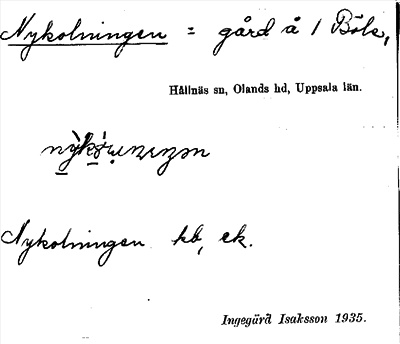 Nykolningen = gård å 1 Böle,
Hållnäs sn, Olands hd, Uppsala län.
Nykolningen kb, ek.
Ingegärd Isaksson 1935.